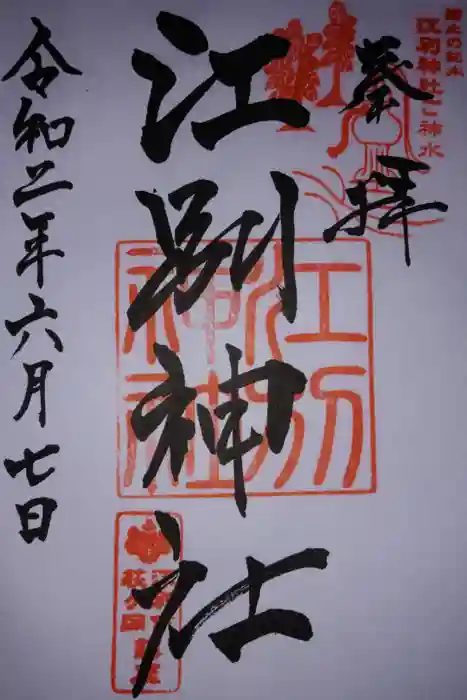 奉拝
江別神社
江別神社
令和二年六月七日
江別神社ご神水